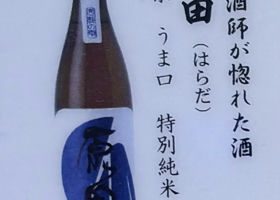 酒師が惚れた酒
田
(はらだ)
うま口 特別純米
原田